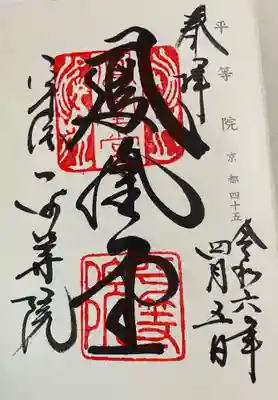 奉拝
平等院
京都四十五
令和六年
四月五日
鳳凰堂
平等院